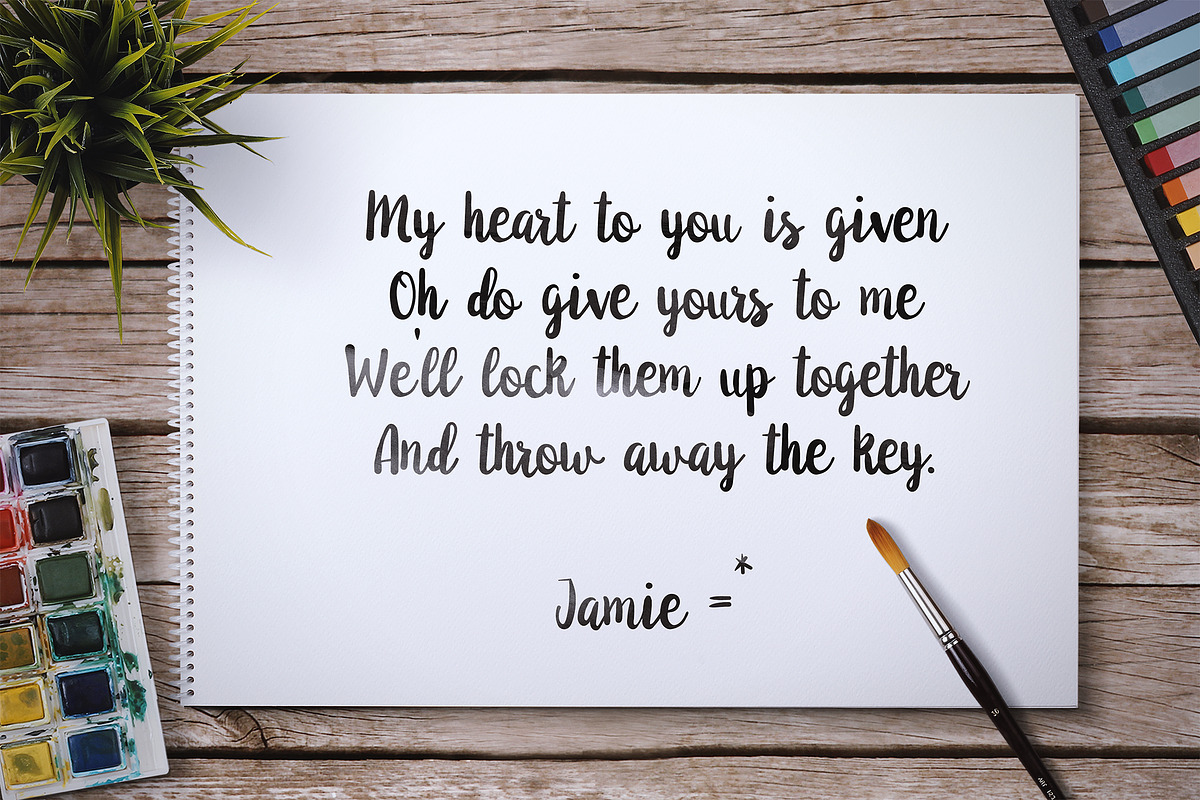 My heart to you is given
Oh do give yours to me
We'll lock them up together
And throw away the key.
Jamie =*
10